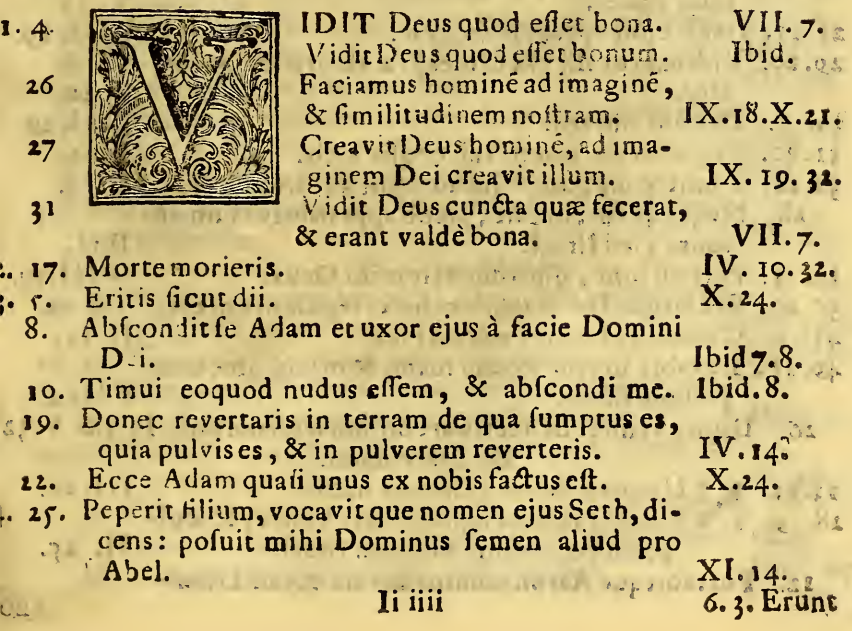 1. 4. VIDIT Deus quod eſſet bona. VII. 7.
Vidit Deus quod eſſet bonum. Ibid.
26 Faciamus hominē ad imaginē,
& ſimilitudinem noſtram. IX. 18. X. 21.
27 Creavit Deus hominē, ad ima-
ginem Dei creavit illum. IX. 19. 32.
31 Vidit Deus cuncta quæ fecerat,
& erant valdè bona. VII. 7.
2. 17. Morte morieris. IV. 10. 32.
3. 5. Eritis ſicut dii. X. 24.
8. Abſcondit ſe Adam et uxor ejus à facie Domini
Dei. Ibid 7. 8.
10. Timui eo quod nudus eſſem, & abſcondi me. Ibid. 8.
19. Donec revertaris in terram de qua ſumptus es,
quia pulvis es, & in pulverem reverteris. IV. 14.
22. Ecce Adam quaſi unus ex nobis factus eſt. X. 24.
4. 25. Peperit filium, vocavit que nomen ejus Seth, di-
cens: poſuit mihi Dominus ſemen aliud pro
Abel. XI. 14.
Ii iiii 6. 3. Erunt